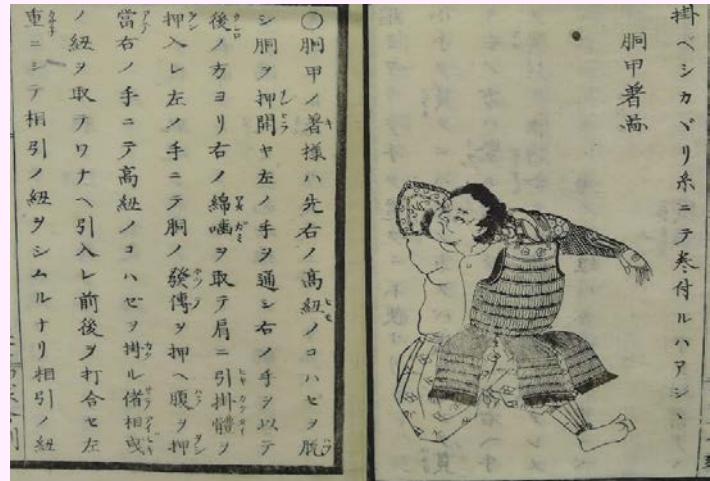 掛ベシカベリ糸ニテ巻付ルハアシ、
胴甲著畾
〇胴甲ノ著様ハ先右ノ髙紐ノコハゼヲ脱
シ胴ヲ押開キ左ノ手ヲ通シ右ノ手ヲ以テ
後ノ方ヨリ右ノ綿噛ヲ取テ肩ニ引掛體ヲ
押入レ左ノ手ニテ胴ノ發傳ヲ押ヘ腹ヲ押
當右ノ手ニテ高紐ノコハゼヲ掛ル偖相曳
ノ紐ヲ取テワナヘ引入レ前後ヲ打合セ左
重ニシテ相引ノ紐ヲシムルナリ相引ノ紐